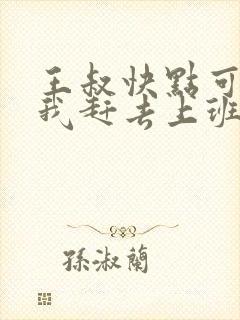 王叔快點可
我赶去上班
孫淑蘭